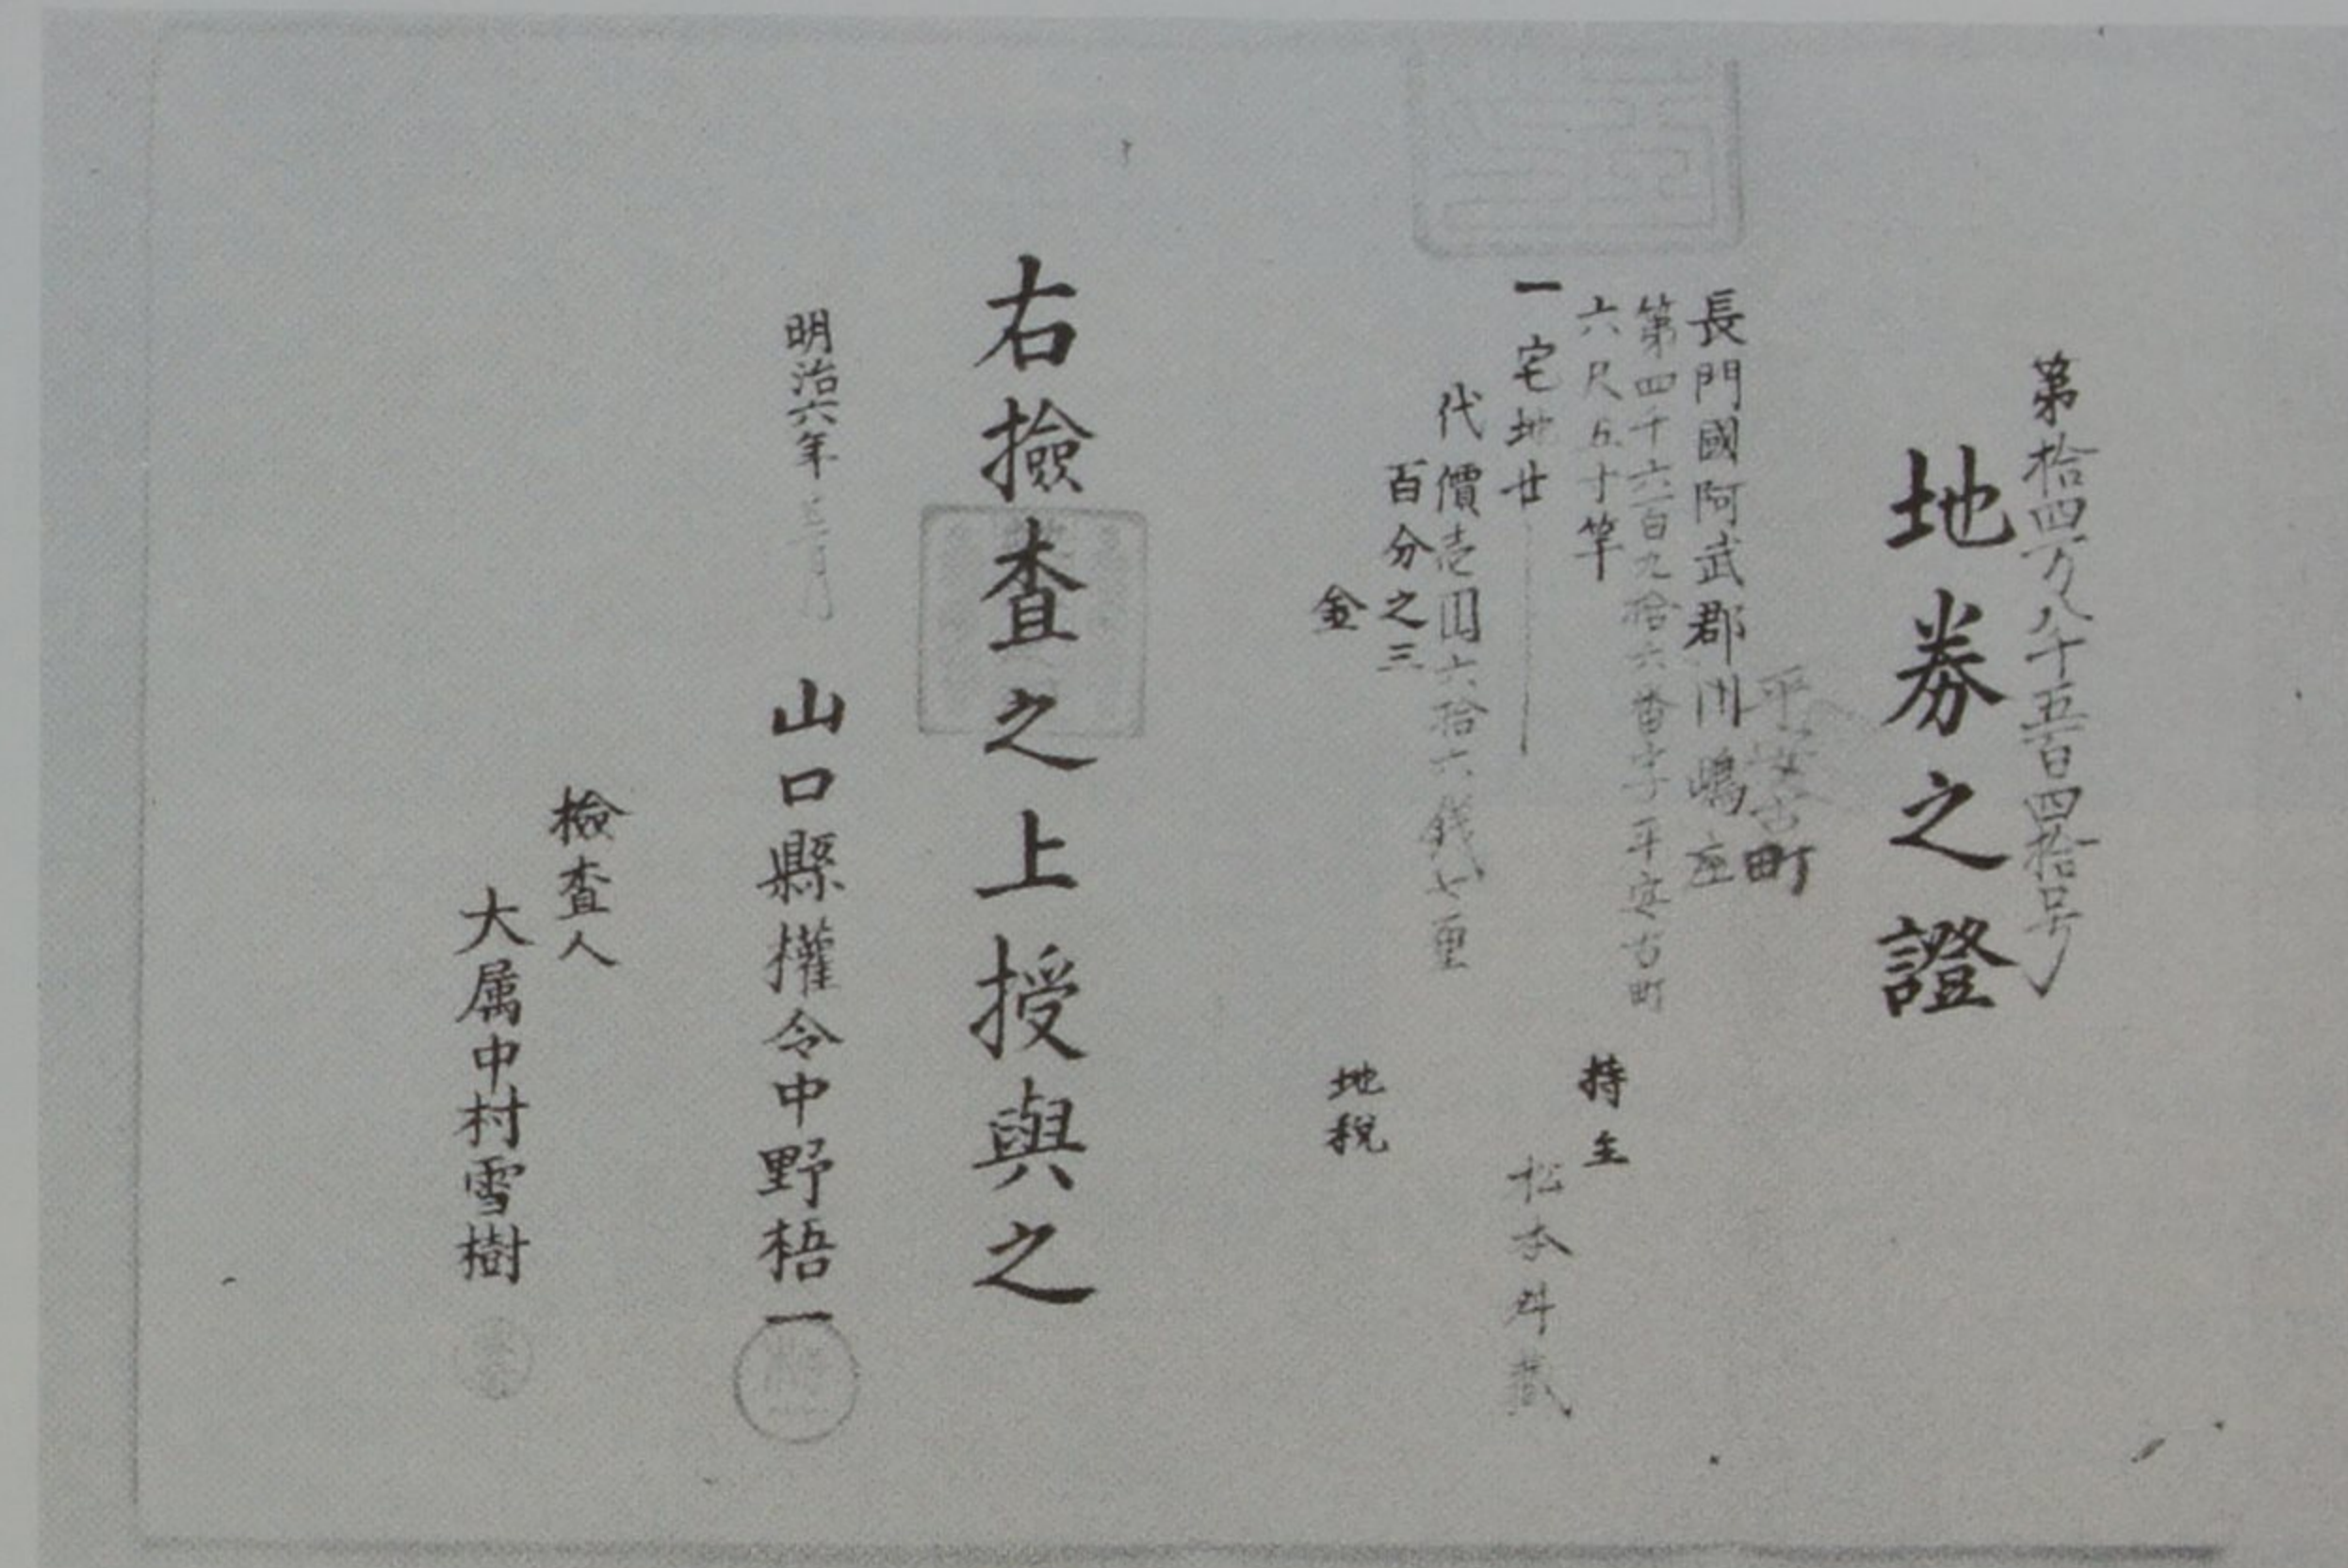 第拾四万八千五百四拾号
地券之證
平安古町
長門國阿武郡川嶋庄
第四千六百九拾六番字平安古町
六尺五寸竿
持主
一宅地廿
松本
代價壱圓六拾六銭七厘
百分之三
金
地税
右撿査之上授與之
明治六年
山口縣權令中野梧一
檢査人
大属中村雪樹